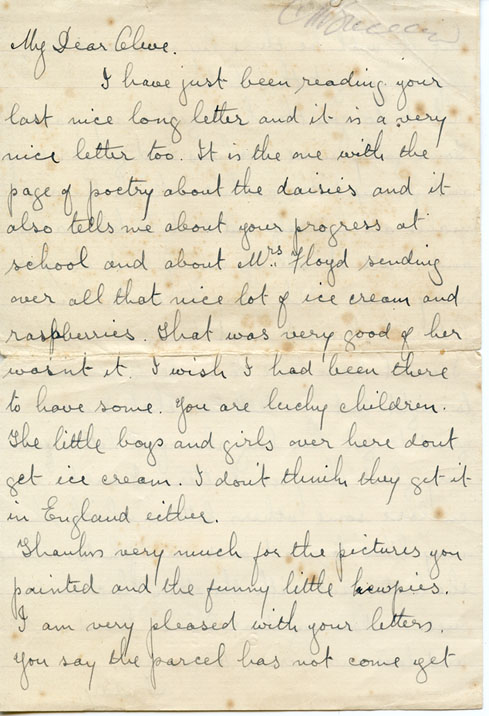 My Dear Olive.
I have just been reading your
last nice long letter and it is a very
nice letter too. It is the one with the
page of poetry about the daisies and it
also tells me about your progress at
school and about Mrs. Floyd sending
over all that nice lot of ice cream and
raspberries. That was very good of her
wasnt it. I wish I had been there
to have some. You are lucky children.
The little boys and girls over here dont
get ice cream. I don't think they get it
in England either.
Thanks very much for the pictures you
painted and the funny little kewpies.
I am very pleased with your letters.
You say the parcel has not come yet